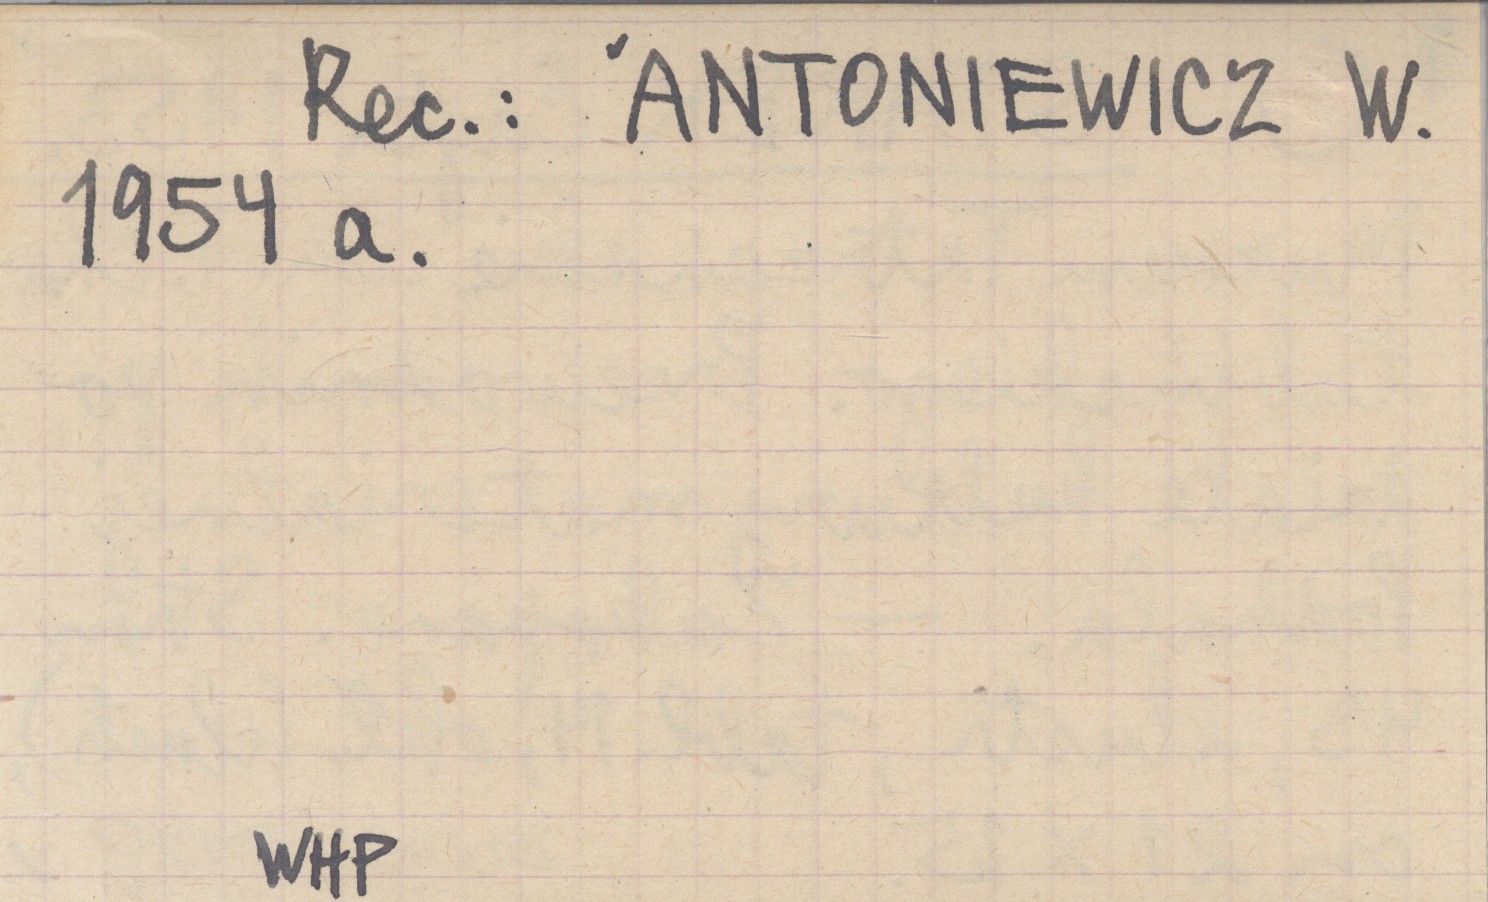 Rec.: ANTONIEWICZ W.
1954 a.
WHP